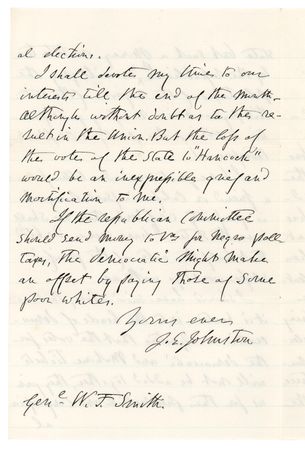 al elections.
I shall devote my time to our
interests till the end of the month -
although without doubt as to the re-
sult in the Union. But the loss of
the votes of the State to "Hancock"
would be an inexpressible grief and
mortification to me.
If the republican Committee
should send money to Va for negro poll
taxes, the democratic might make
an offset by paying those of some
poor whites.
Yours ever
J. E. Johnston
Genl W. F. Smith.